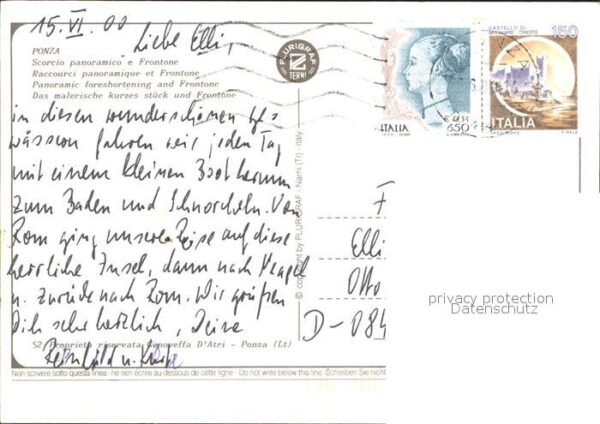 15.VI.00
Liebe Elli,
PONZA
Scorcio panoramico e Frontone
Raccourci panoramique et Frontone
Panoramic foreshortening and Frontone
Das malerische kurzes stück und Frontone
in diesen wunderschönen Ge-
wässern fahren wir jeden Tag
mit einem kleinen Boot herum
zum Baden und Schnorcheln. Von
Rom ging unsere Reise auf diese
herrliche Insel, dann nach Neapel
u. zurück nach Rom. Wir grüßen
Dich sehr herzlich, Deine
52 Proprietà riservata Genoveffa D'Atri - Ponza (Lt)
Reinhold u.
Non scrivere sotto questa linea - ne rien écrire au-dessous de cette ligne - Do not write below this line
PLURIGRAF
TERNI
© copyright by PLURIGRAF - Narni (Tr) - Italy
ITALIA
650
CASTELLO DI
150
ITALIA
F
Elli
Otto
D-084
privacy protection
Datenschutz